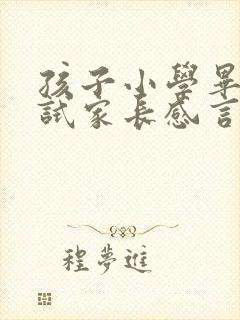 孩子小學畢
試家長感言
程夢進